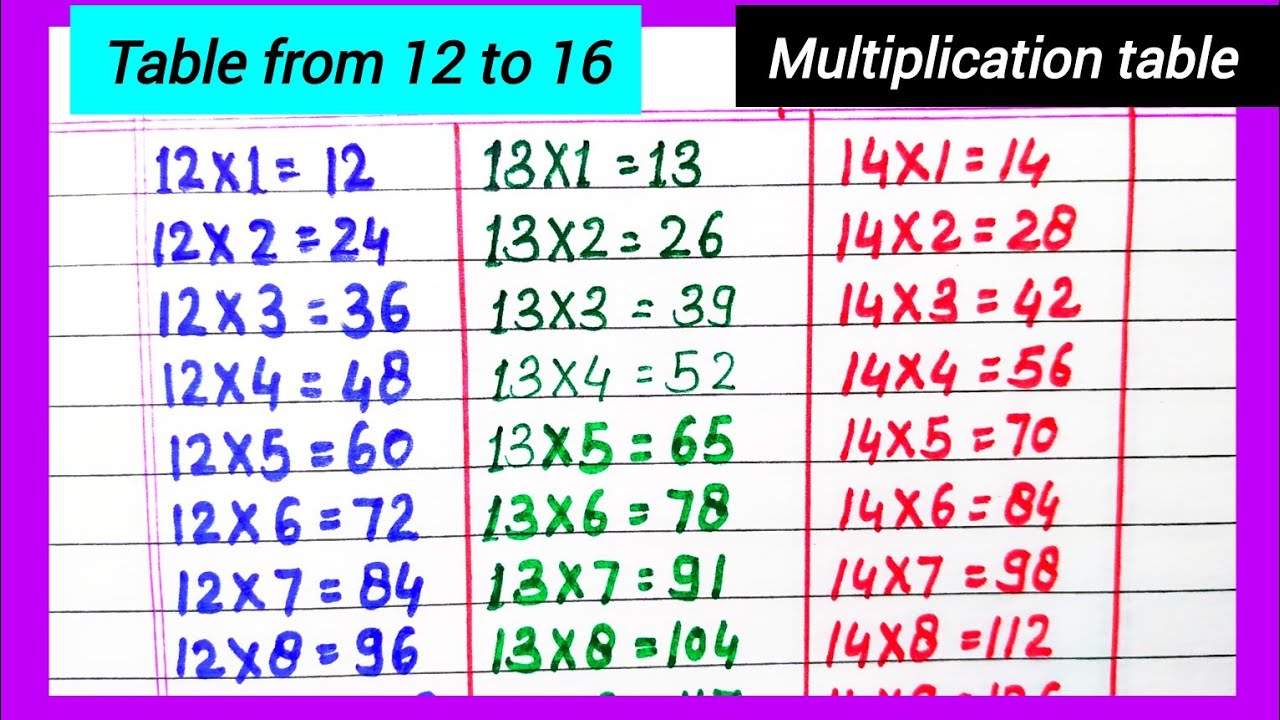 Table from 12 to 16
Multiplication table
12X1= 12
12X2=24
12X3=36
12X4=48
12X5=60
12X6=72
12X7=84
12X8=96
13X1=13
13X2=26
13X3=39
13X4=52
13X5=65
13X6=78
13X7=91
13X8=104
14X1=14
14X2=28
14X3=42
14X4=56
14X5=70
14X6=84
14X7=98
14X8=112